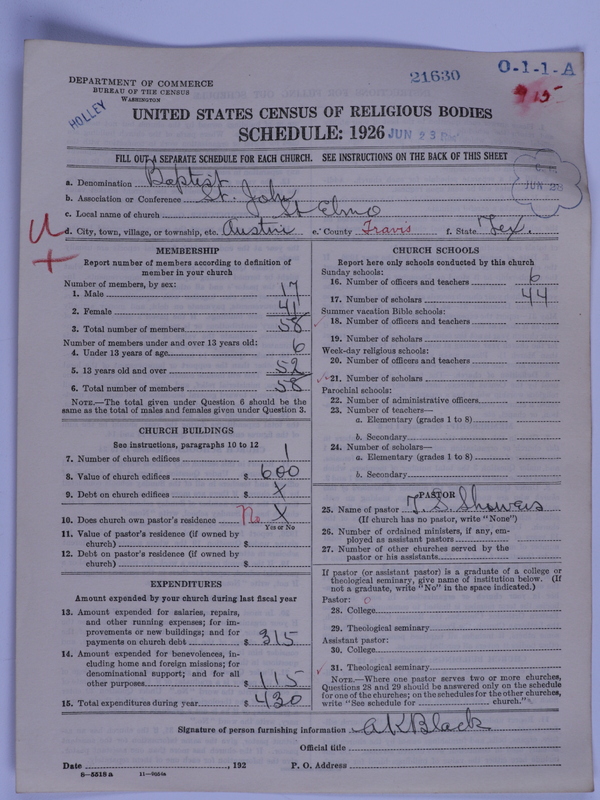 21630
O-1-1-A
DEPARTMENT OF COMMERCE
BUREAU OF THE CENSUS
WASHINGTON
HOLLEY
915
UNITED STATES CENSUS OF RELIGIOUS BODIES
SCHEDULE: 1926
JUN 23
FILL OUT A SEPARATE SCHEDULE FOR EACH CHURCH. SEE INSTRUCTIONS ON THE BACK OF THIS SHEET
JUN 28
a. Denomination Baptist
b. Association or Conference St. John
c. Local name of church St Elmo
d. City, town, village, or township, etc. Austin e. County Travis f. State Tex.
MEMBERSHIP
Report number of members according to definition of
member in your church
Number of members, by sex:
1. Male 17
2. Female 41
3. Total number of members 58
Number of members under and over 13 years old:
4. Under 13 years of age 6
5. 13 years old and over 52
6. Total number of members 58
NOTE.—The total given under Question 6 should be the
same as the total of males and females given under Question 3.
CHURCH BUILDINGS
See instructions, paragraphs 10 to 12
7. Number of church edifices 1
8. Value of church edifices $ 600
9. Debt on church edifices $ X
10. Does church own pastor's residence No X
Yes or No
11. Value of pastor's residence (if owned by
church) $
12. Debt on pastor's residence (if owned by
church) $
EXPENDITURES
Amount expended by your church during last fiscal year
13. Amount expended for salaries, repairs,
and other running expenses; for im-
provements or new buildings; and for
payments on church debt $ 315
14. Amount expended for benevolences, in-
cluding home and foreign missions; for
denominational support; and for all
other purposes $ 115
15. Total expenditures during year $ 430
CHURCH SCHOOLS
Report here only schools conducted by this church
Sunday schools:
16. Number of officers and teachers 6
17. Number of scholars 44
Summer vacation Bible schools:
18. Number of officers and teachers
19. Number of scholars
Week-day religious schools:
20. Number of officers and teachers
21. Number of scholars
Parochial schools:
22. Number of administrative officers
23. Number of teachers—
a. Elementary (grades 1 to 8)
b. Secondary
24. Number of scholars—
a. Elementary (grades 1 to 8)
b. Secondary
PASTOR
25. Name of pastor T. S. Showers
(If church has no pastor, write "None")
26. Number of ordained ministers, if any, em-
ployed as assistant pastors
27. Number of other churches served by the
pastor or his assistants
If pastor (or assistant pastor) is a graduate of a college or
theological seminary, give name of institution below. (If
not a graduate, write "No" in the space indicated.)
Pastor: 0
28. College
29. Theological seminary
Assistant pastor:
30. College
31. Theological seminary
NOTE.—Where one pastor serves two or more churches,
Questions 28 and 29 should be answered only on the schedule
for one of the churches; on the schedules for the other churches,
write "See schedule for church."
Signature of person furnishing information A K Black
Official title
Date , 192 P. O. Address
8-5518 a 11-9054a